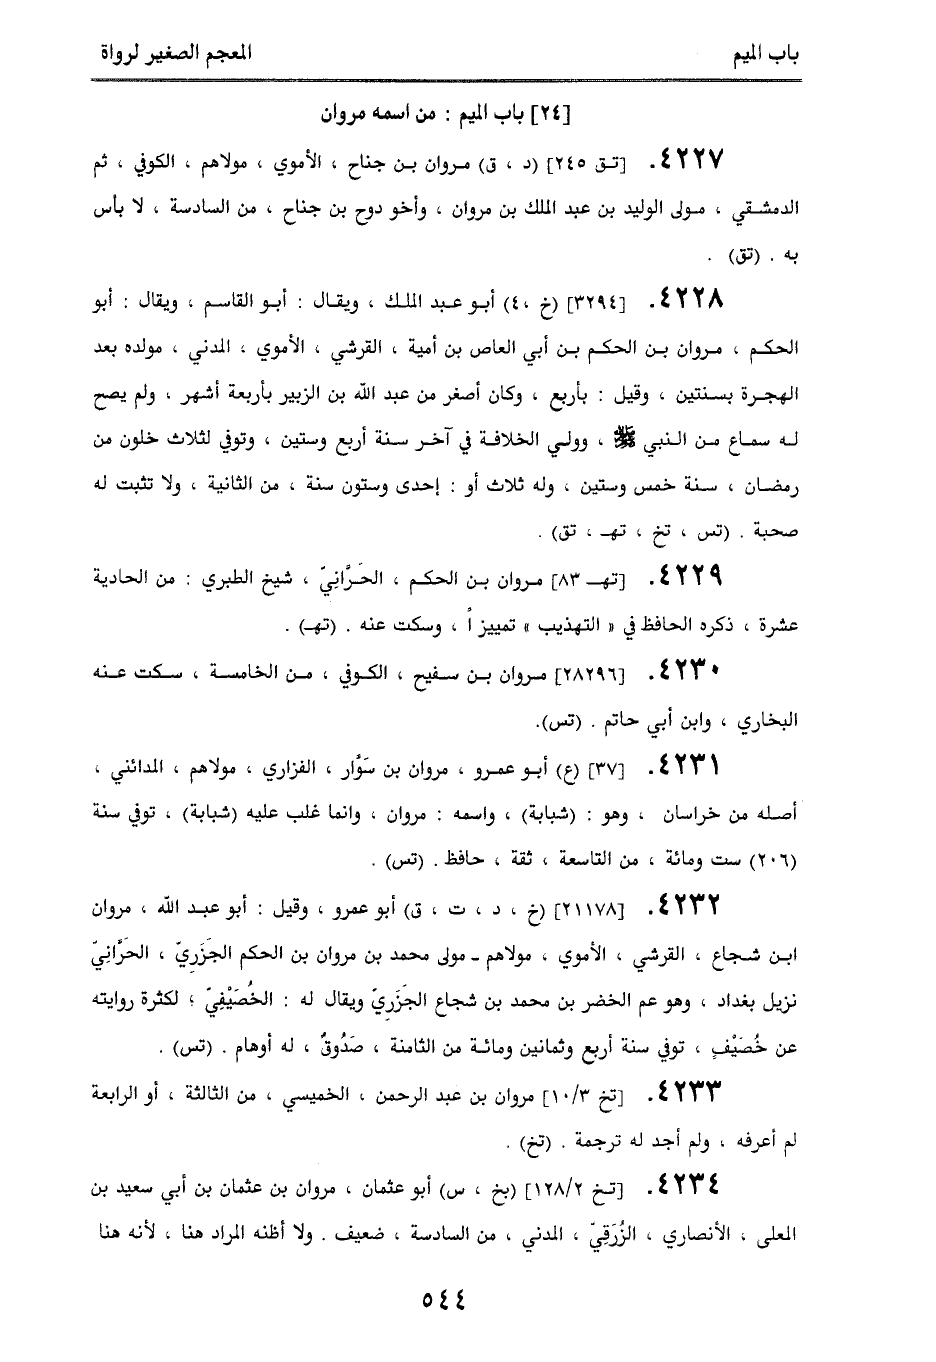 باب الميم
المعجم الصغير لرواة
[٢٤] باب الميم : من اسمه مروان
٤٢٢٧. [تق ٢٤٥] (د ، ق) مروان بن جناح ، الأموي ، مولاهم ، الكوفي ، ثم
الدمشقي ، مولى الوليد بن عبد الملك بن مروان ، وأخو دوح بن جناح ، من السادسة ، لا بأس
به . (تق) .
٤٢٢٨. [٣٢٩٤] (خ ،٤) أبو عبد الملك ، ويقال : أبو القاسم ، ويقال : أبو
الحكم ، مروان بن الحكم بن أبي العاص بن أمية ، القرشي ، الأموي ، المدني ، مولده بعد
الهجرة بسنتين ، وقيل : بأربع ، وكان أصغر من عبد الله بن الزبير بأربعة أشهر ، ولم يصح
له سماع من النبي ﷺ ، وولي الخلافة في آخر سنة أربع وستين ، وتوفي لثلاث خلون من
رمضان ، سنة خمس وستين ، وله ثلاث أو : إحدى وستون سنة ، من الثانية ، ولا تثبت له
صحبة . (تس ، تخ ، تهـ ، تق) .
٤٢٢٩. [تهـ ٨٣] مروان بن الحكم ، الحَرَّانِيّ ، شيخ الطبري : من الحادية
عشرة ، ذكره الحافظ في « التهذيب » تمييز اً ، وسكت عنه . (تهـ) .
٤٢٣٠. [٢٨٢٩٦] مروان بن سفيح ، الكوفي ، من الخامسة ، سكت عنه
البخاري ، وابن أبي حاتم . (تس).
٤٢٣١. [٣٧] (ع) أبو عمرو ، مروان بن سَوَّار ، الفزاري ، مولاهم ، المدائني ،
أصله من خراسان ، وهو : (شبابة) ، واسمه : مروان ، وانما غلب عليه (شبابة) ، توفي سنة
(٢٠٦) ست ومائة ، من التاسعة ، ثقة ، حافظ . (تس) .
٤٢٣٢. [٢١١٧٨] (خ ، د ، ت ، ق) أبو عمرو ، وقيل : أبو عبد الله ، مروان
ابن شجاع ، القرشي ، الأموي ، مولاهم - مولى محمد بن مروان بن الحكم الجَزَرِيّ ، الحَرَّانِيّ
نزيل بغداد ، وهو عم الخضر بن محمد بن شجاع الجَزَرِيّ ويقال له : الخُصَيْفِيّ ؛ لكثرة روايته
عن خُصَيْفٍ ، توفي سنة أربع وثمانين ومائة من الثامنة ، صَدُوقٌ ، له أوهام . (تس) .
٤٢٣٣. [تخ ١٠/٣] مروان بن عبد الرحمن ، الخميسي ، من الثالثة ، أو الرابعة
لم أعرفه ، ولم أجد له ترجمة . (تخ) .
٤٢٣٤. [تخ ١٢٨/٢] (بخ ، س) أبو عثمان ، مروان بن عثمان بن أبي سعيد بن
المعلى ، الأنصاري ، الزُرَقِيّ ، المدني ، من السادسة ، ضعيف . ولا أظنه المراد هنا ، لأنه هنا
٥٤٤